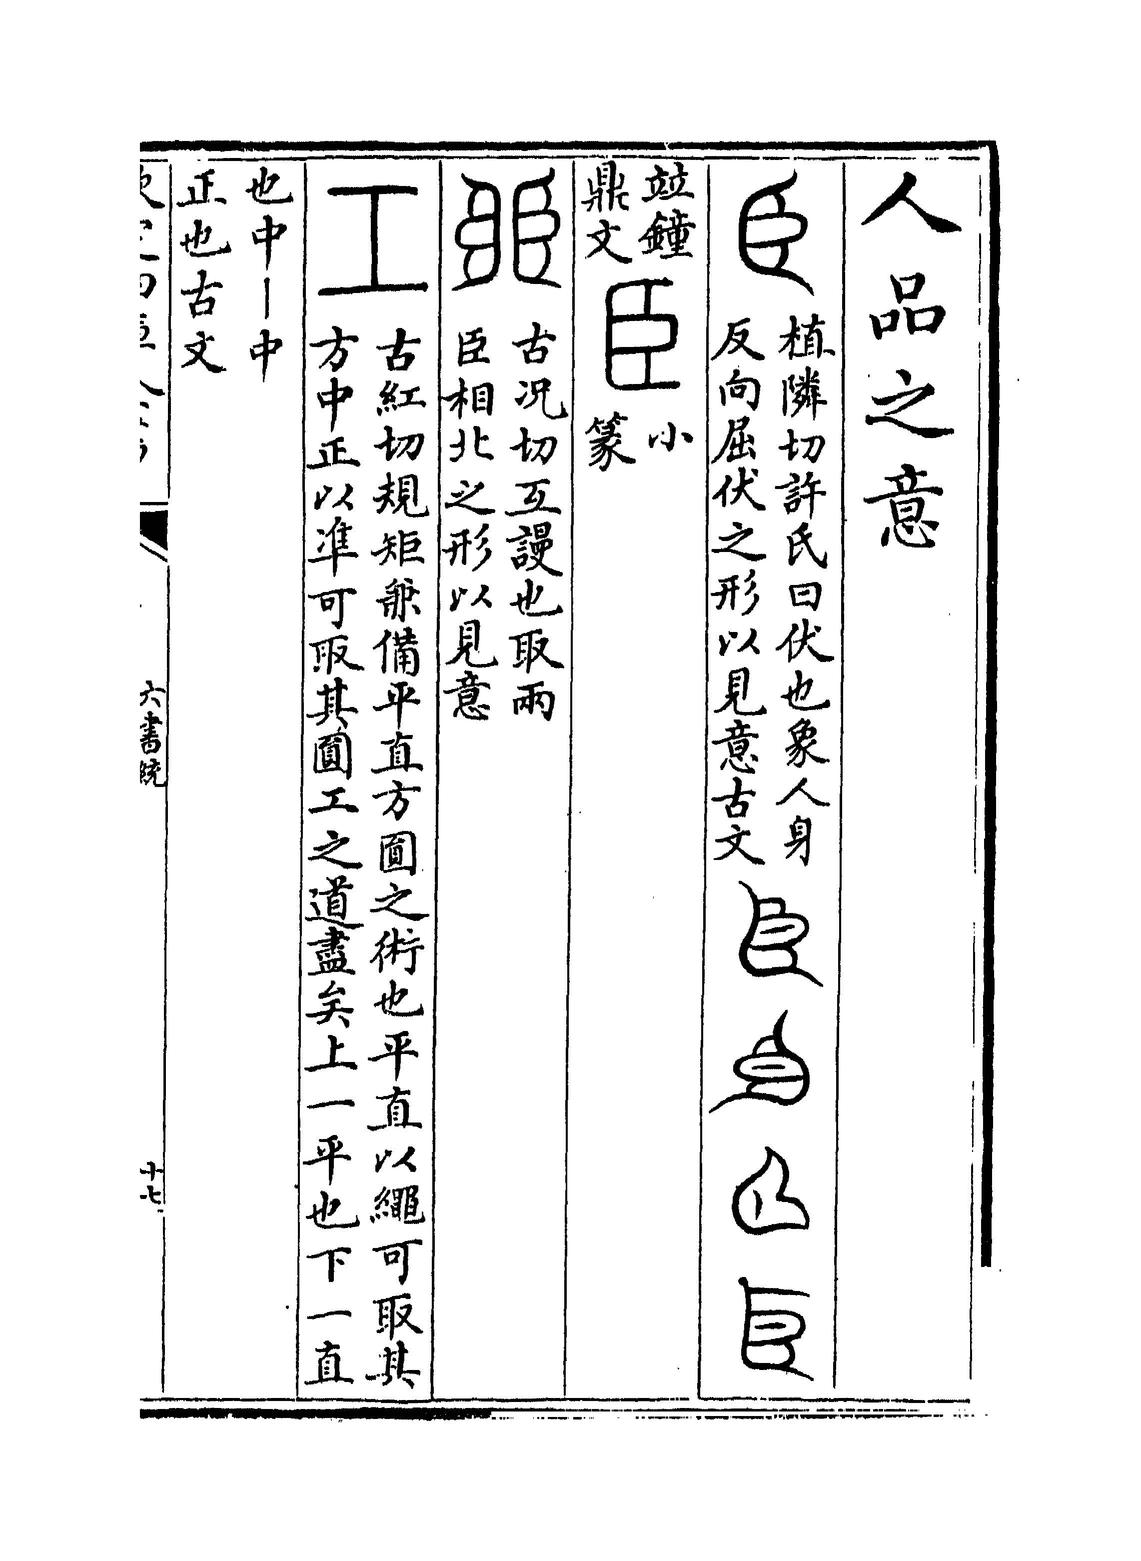 人品之意
臣 植隣切許氏曰伏也象人身
反向屈伏之形以見意古文
竝鐘
鼎文
臣 小
篆
古況切互謾也取兩
臣相北之形以見意
工 古紅切規矩兼備平直方圓之術也平直以繩可取其
方中正以準可取其圓工之道盡矣上一平也下一直
也中丨中
正也古文
六書統
十七